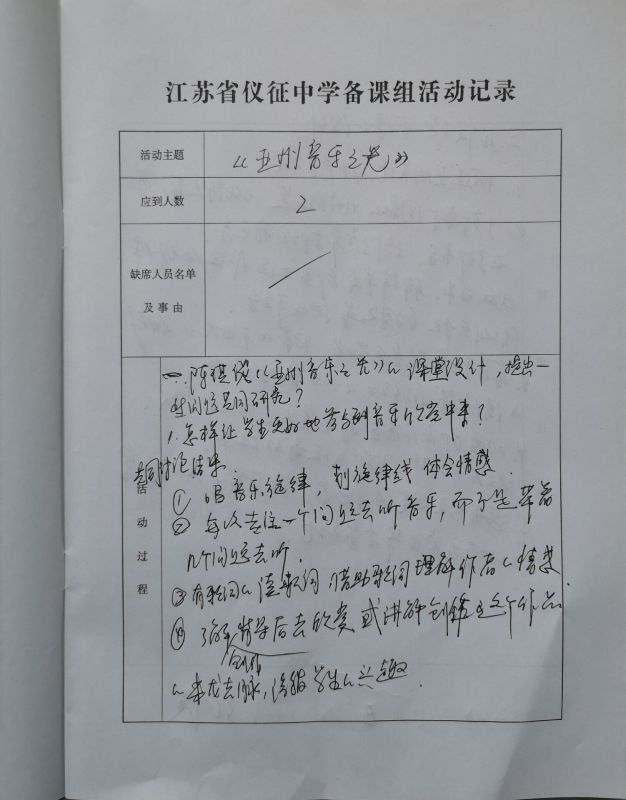 江苏省仪征中学备课组活动记录
活动主题
《亚洲音乐之光》
应到人数
2
缺席人员名单
及事由
活动过程
一. 陈琪说《亚洲音乐之光》的课堂设计，提出一
些问题共同研究？
1. 怎样让学生更好地参与到音乐课堂中来？
共同讨论结果.
① 唱音乐旋律，划旋律线 体会情感.
② 每次专注一个问题去听音乐，而不是带着
几个问题去听.
③ 有歌词的读歌词 借助歌词理解作者的情感.
④ 了解创作背景后去欣赏或讲解创作这个作品
的来龙去脉，激发学生的兴趣.